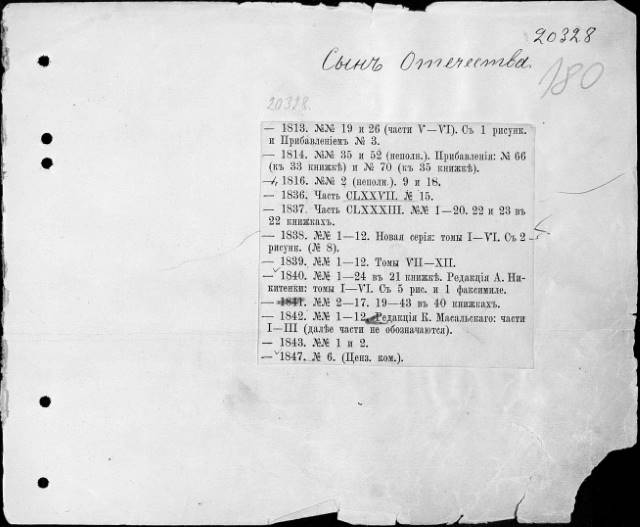 20328
Сынъ Отечества.
180
20328.
— 1813. №№ 19 и 26 (части V—VI). Съ 1 рисунк.
и Прибавленіемъ № 3.
— 1814. №№ 35 и 52 (неполн.). Прибавленія: № 66
(къ 33 книжкѣ) и № 70 (къ 35 книжкѣ).
— 1816. №№ 2 (неполн.). 9 и 18.
— 1836. Часть CLXXVII. № 15.
— 1837. Часть CLXXXIII. №№ 1—20. 22 и 23 въ
22 книжкахъ.
— 1838. №№ 1—12. Новая серія: томы I—VI. Съ 2
рисунк. (№ 8).
— 1839. №№ 1—12. Томы VII—XII.
— 1840. №№ 1—24 въ 21 книжкѣ. Редакція А. Ни-
китенки: томы I—VI. Съ 5 рис. и 1 факсимиле.
— 1841. №№ 2—17. 19—43 въ 40 книжкахъ.
— 1842. №№ 1—12. Редакція К. Масальскаго: части
I—III (далѣе части не обозначаются).
— 1843. №№ 1 и 2.
— 1847. № 6. (Ценз. ком.).